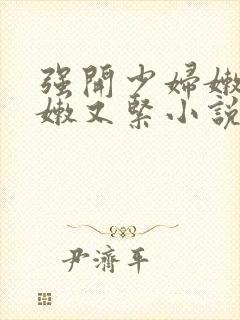 强開少婦嫩
嫩又緊小說
尹濟平